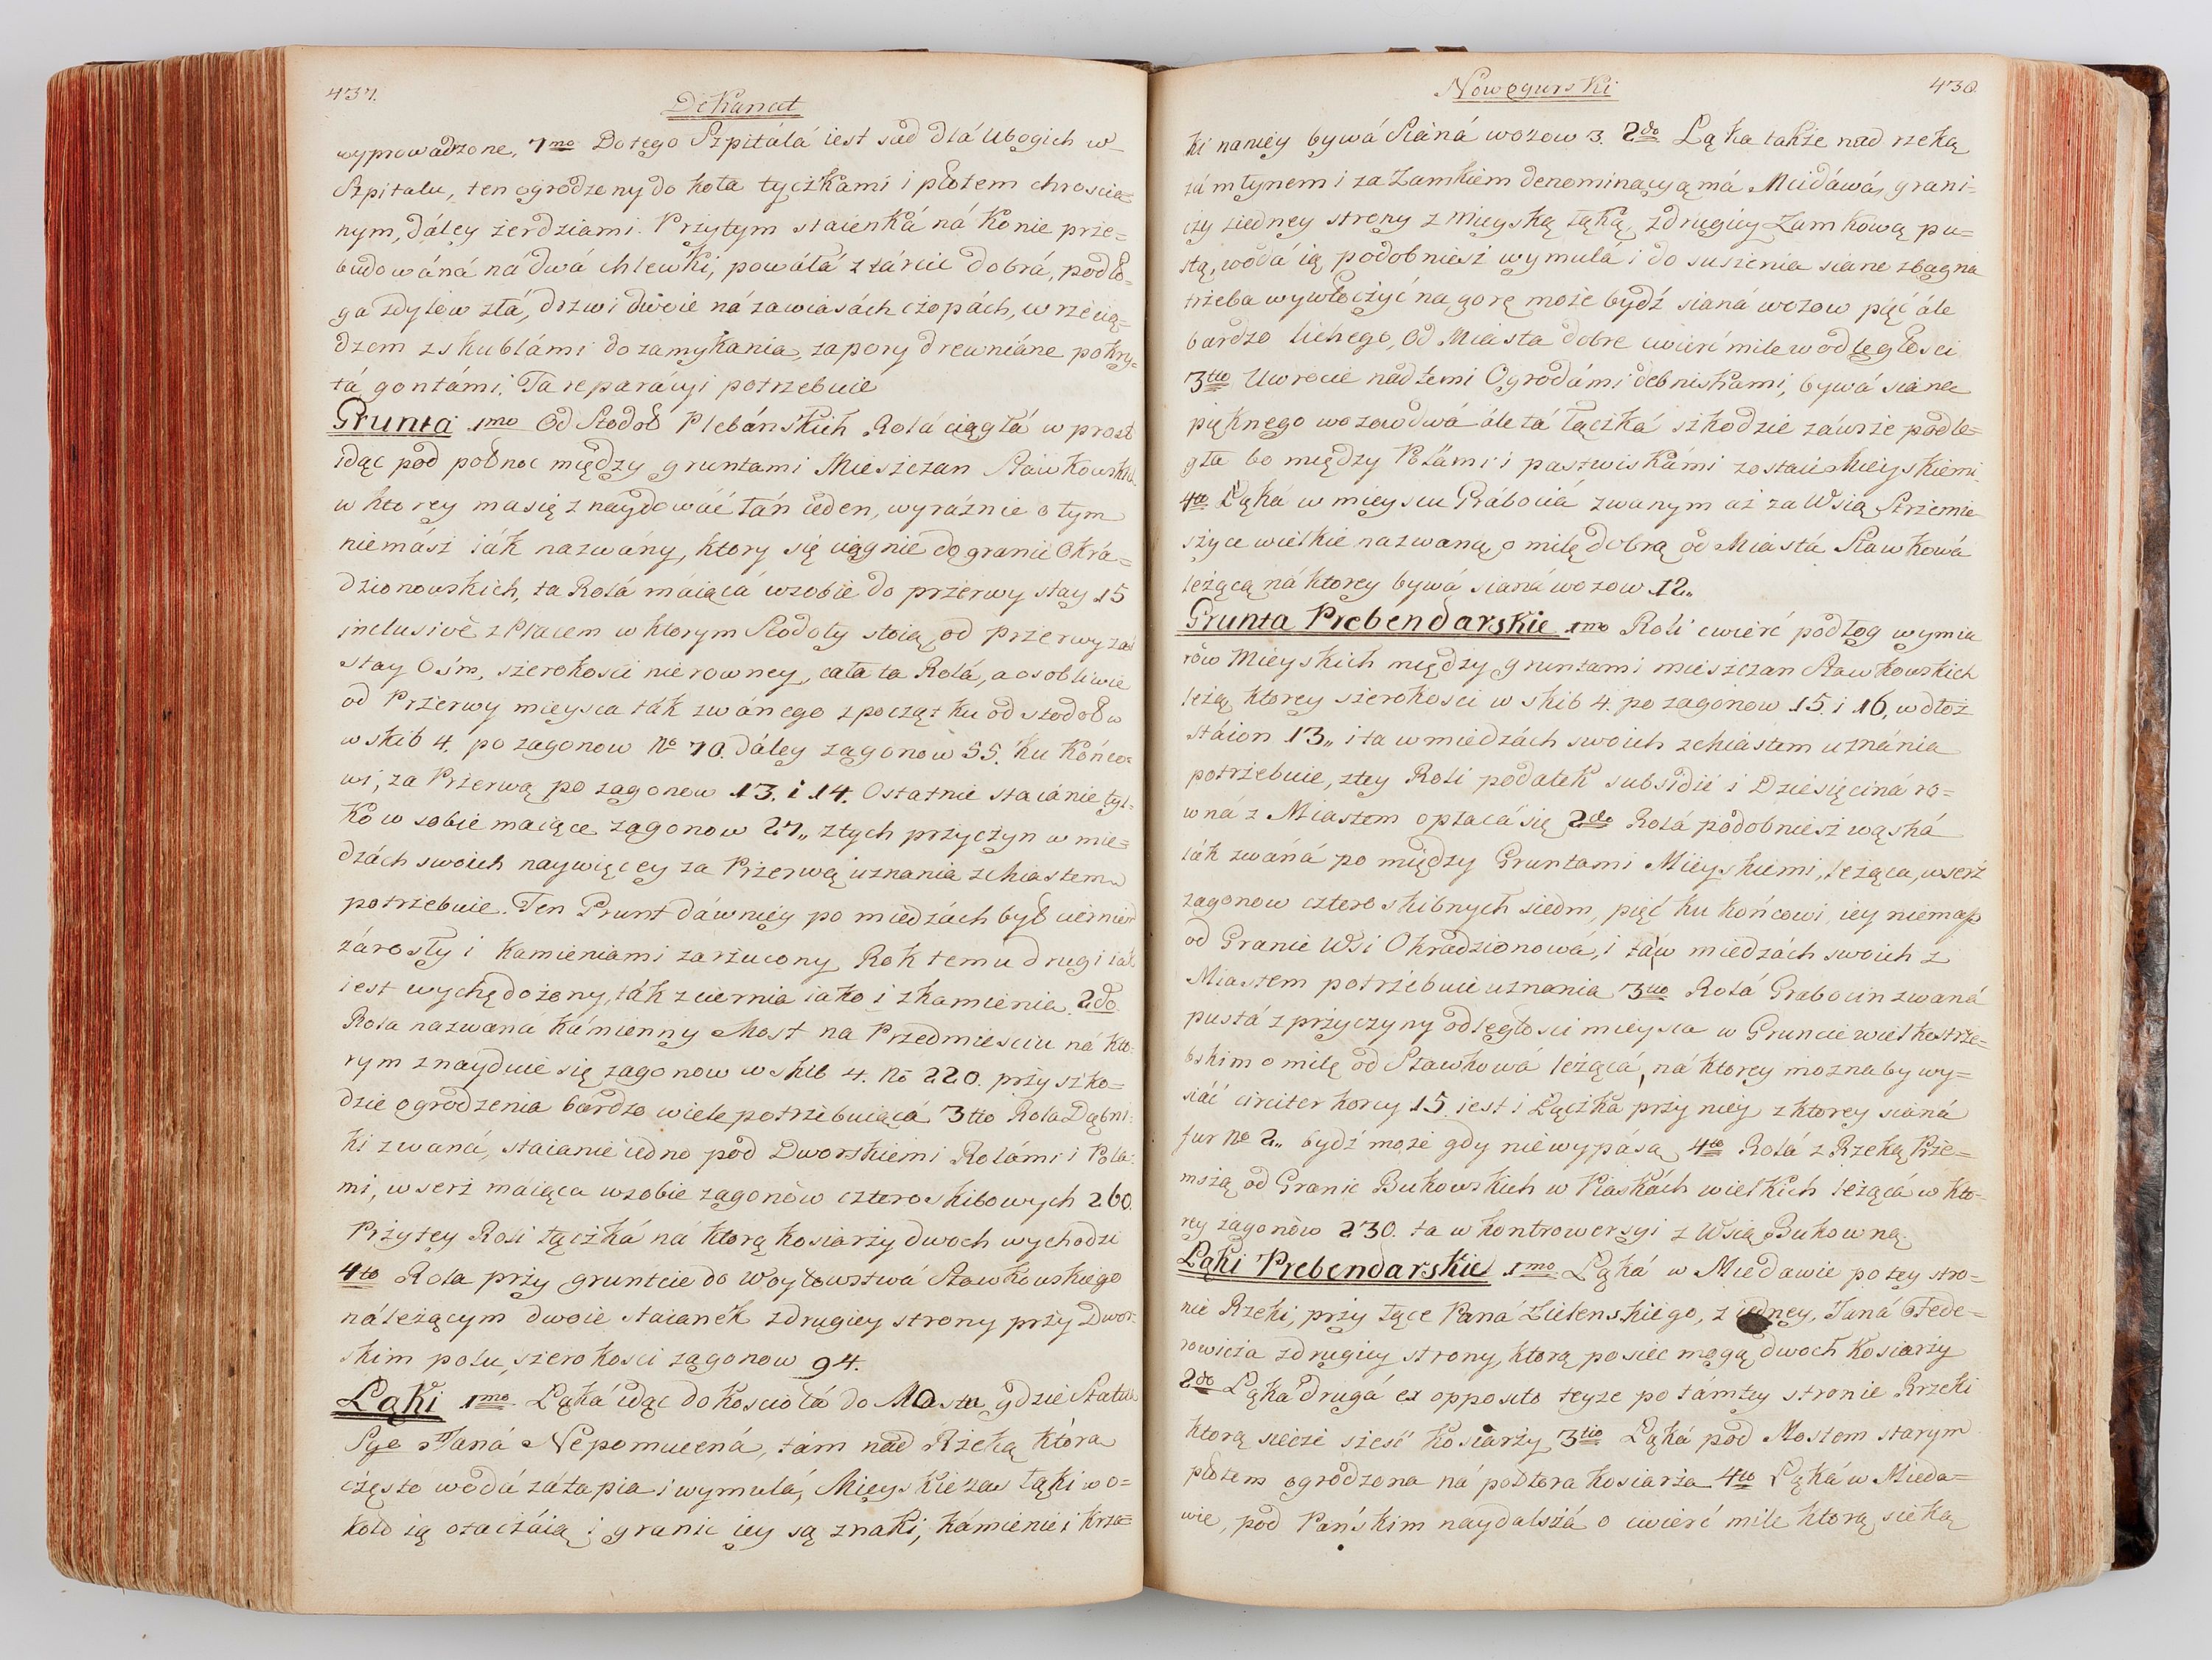 437.
Dekanat
wyprowadzone, 7mo Do tego Szpitálá iest sad dlá Ubogich w
Szpitalu, ten ogrodzeny do koła tyczkami i płotem chroscia=
nym, dáley żerdziami. Przytym staienká ná Konie prze=
budowáná ná dwá chlewki, powáłá z tárcic dobrá, podło=
ga zdylow złá, drzwi dwoie ná zawiasách czopách, wrzecią=
dzem z skublámi do zamykania, zapory drewniáne pokry=
tá gontámi. Ta reparácyi potrzebuie
Grunta 1mo Od Stodoł Plebánskich Rolá ciągłá w prost
idąc pod połnoc między gruntami Mieszczan Sławkowskich
w ktorey ma się znaydowáć łán ieden, wyráźnie o tym
niemász iák nazwány, ktory się ciągnie do granic Okrá=
dzionowskich, ta Rolá máiącá wsobie do przerwy stay 15
inclusivè z Placem w ktorym Stodoły stoią, od przerwy zaś
stay Ośm, szerokosci nierowney, cała ta Rolá, a osobliwie
od Przerwy mieysca ták zwánego z początku od stodoł w
w skib 4. po zagonow No 70. dáley zagonow 55. ku końco=
wi, za Przerwą po zagonow 13. i 14. Ostatnie staiánie tyl=
ko w sobie maiące zagonow 27,, ztych przyczyn w mie=
dzách swoich naywięcey za Przerwą uznania z Miastem
potrzebuie. Ten Grunt dáwniey po miedzách był cierniem
zárosły i kamieniami zarzucony Rok temu drugi iák
iest wychędożony, ták z ciernia iako i z kamienia. 2do
Rola nazwaná Kámienny Most na Przedmiesciu ná kto=
rym znayduie się zagonow w skib 4. No 220. przy szko=
dzie ogrodzenia bárdzo wiele potrzebuiącá 3tio Rola Dąbni=
ki zwaná, staianie iedno pod Dworskiemi Rolámi i Pola=
mi, w serz maiąca wsobie zagonòw cztero skibowych 260.
Przytey Roli łączká ná ktorą kosiarzy dwoch wychodzi
4to Rola przy gruntcie do Woytowstwá Sławkowskiego
náleżącym dwoie staianek z drugiey strony przy Dwor=
skim polu, szerokosci zagonow 94.
Łąki 1mo Łąká idąc do koscioła do Mostu gdzie Statua
Sgo Janá Nepomucená, tám nad Rzeką która
często wodá zátapia i wymulá, Mieyskie zas łąki wo=
koło ią otaczáią i granic iey są znaki, kámienie i krza=
Nowogurski
438.
ki naniey bywá Siáná wozow 3. 2do Łąka także nad rzeką
zá młynem i za Zamkiem denominacyą má Miédáwá, grani=
czy ziedney strony z mieyską łąką, z drugiey Zamkową pu=
stą, wodá ią podobniesz wymulá i do suszenia siane zbagna
trzeba wywłoczyć na gorę może bydź sianá wozow pięć ále
bárdzo lichego, Od Miasta dobre cwierć mile w odległosci
3tio Uwrocie nad temi Ogrodámi debniskami, bywá siana
pięknego wozow dwá ále tá łączká szkodzie záwsze podle=
gła bo między Polámi i pastwiskámi zostaie Mieyskiemi.
4to Łąká w mieyscu Grábociá zwanym aż za Wsią Strzemie
szyce wielkie nazwaną o milę dobrą od Miastá Sławkowá
leżącą ná ktorey bywá sianá wozow 12,,
Grunta Prebendarskie 1mo Roli cwierć podług wymia
rów Mieyskich między gruntami mieszczan Sławkowskich
leżą, ktorey szerokosci w skib 4. po zagonow 15. i 16, wdłoż
stáion 13,, i ta w miedzách swoich z Miastem uznánia
potrzebuie, z tey Roli podatek subsidii i Dziesięciná ro=
wná z Miastem opłacá się 2do Rolá podobniesz wąská
ták zwáná po między Gruntami Mieyskiemi, leżąca, wserz
zagonow cztero skibnych siedm, pięć ku końcowi, iey niemasz
od Granic Wsi Okradzionowá, i tá w miedzách swoich z
Miastem potrzebuie uznania 3tio Rolá Grabocin zwaná
pustá z przyczyny odległosci mieysca w Gruncie wielkostrze=
bskim o milę od Sławkowá leżącá, ná ktorey można by wy=
siáć circiter korcy 15. iest i Łączka przy niey z ktorey sianá
fur No 2,, bydź może gdy nie wypásą 4to Rolá z Rzeką Prze=
mszą od Granic Bukowskich w Piaskách wielkich leżącá w kto=
rey zagonòw 230. ta w kontrowersyi z Wsią Bukowną.
Łąki Prebendarskie 1mo Łąká w Miedawie po tey stro=
nie Rzeki, przy łące Paná Zielenskiego, z iedney, Janá Fede=
rowicza z drugiey strony, ktorą posiec mogą dwoch Kosiarzy
2do Łąka drugá ex opposito teyże po támtey stronie Rzeki
ktorą sieczé sześć kosiarzy 3tio Łąká pod Mostem starym
płotem ogrodzona ná połtora kosiarza 4to Łąká w Mieda=
wie, pod Pańskim naydalszá o cwierć mile ktorą sieką